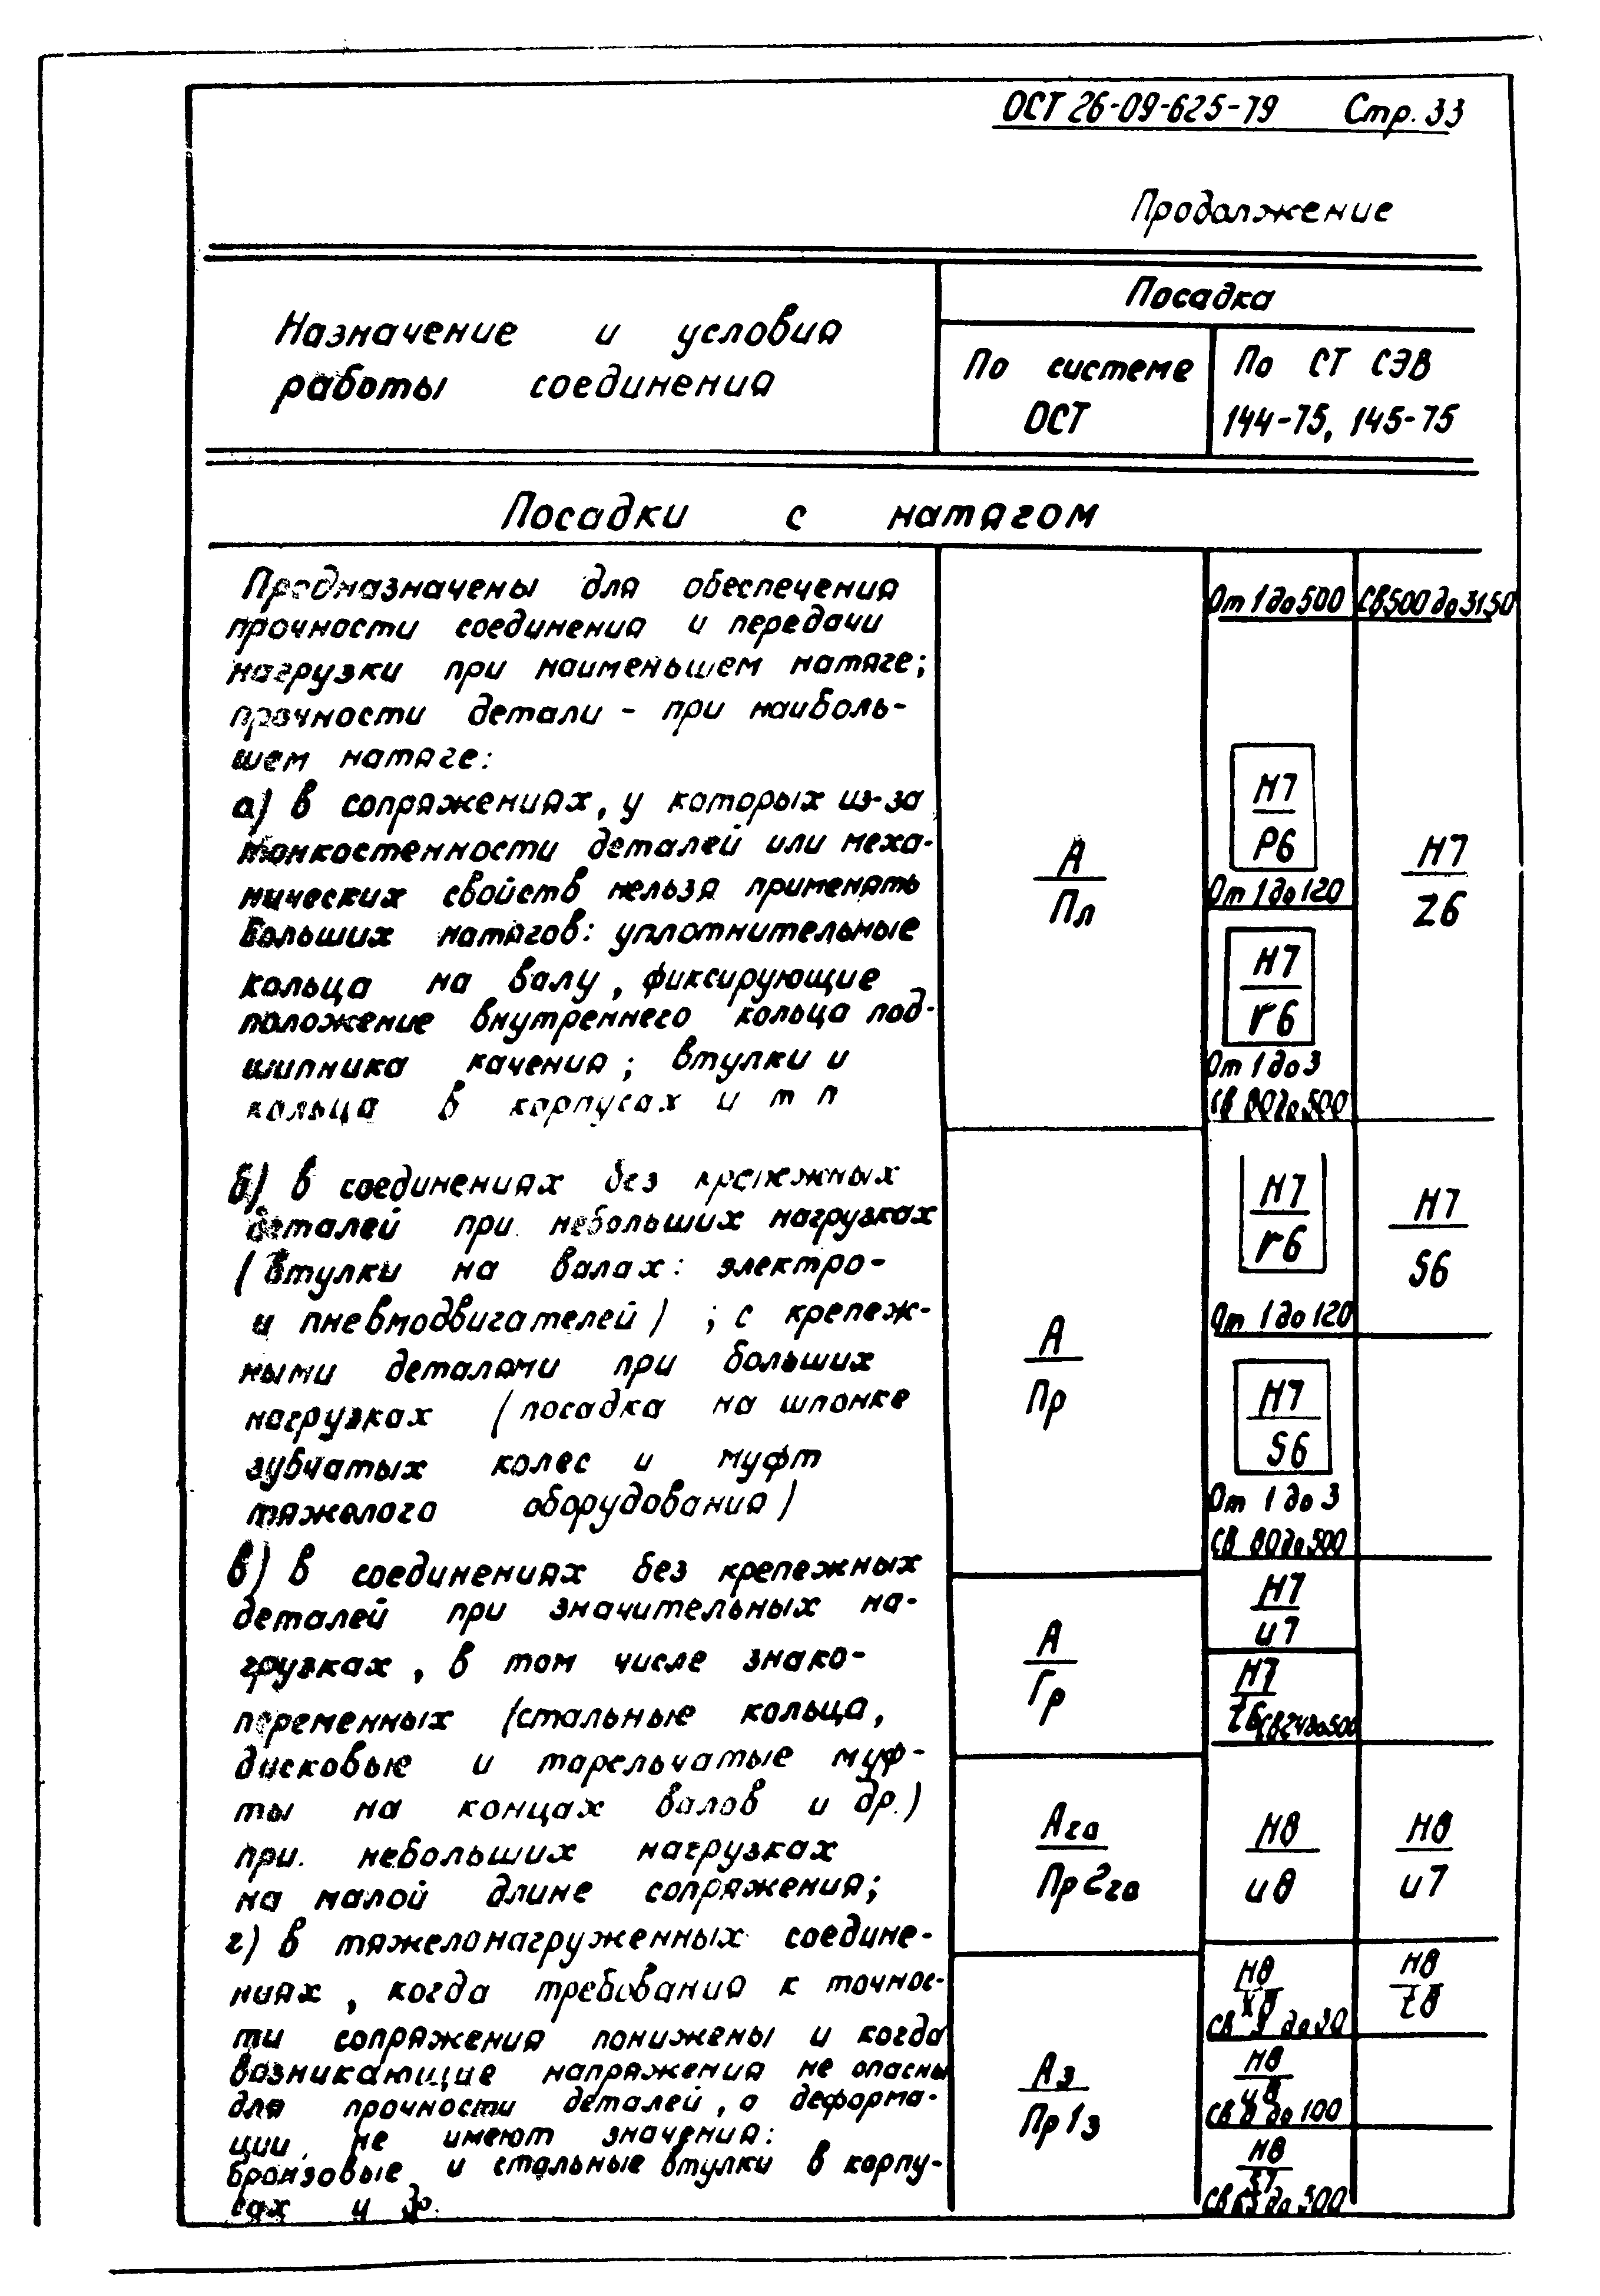 ОСТ 26-09-625-79 Стр. 33
Продолжение
Назначение и условия
работы соединения
Посадка
По системе
ОСТ
По СТ СЭВ
144-75, 145-75
Посадки с натягом
Предназначены для обеспечения
прочности соединения и передачи
нагрузки при наименьшем натяге;
прочности детали - при наиболь-
шем натяге:
а) в сопряжениях, у которых из-за
тонкостенности деталей или меха-
нических свойств нельзя применять
больших натягов: уплотнительные
кольца на валу, фиксирующие
положение внутреннего кольца под-
шипника качения; втулки и
кольца в корпусах и т п
А
Пл
От 1 до 500
Св 500 до 3150
H7
p6
От 1 до 120
H7
r6
От 1 до 3
Св 80 до 500
H7
Z6
б) в соединениях без крепежных
деталей при небольших нагрузках
(втулки на валах: электро-
и пневмодвигателей) ; с крепеж-
ными деталями при больших
нагрузках (посадка на шпонке
зубчатых колес и муфт
тяжелого оборудования)
А
Пр
H7
r6
От 1 до 120
H7
s6
От 1 до 3
Св 80 до 500
H7
s6
в) в соединениях без крепежных
деталей при значительных на-
грузках, в том числе знако-
переменных (стальные кольца,
дисковые и тарельчатые муф-
ты на концах валов и др.)
при. небольших нагрузках
на малой длине сопряжения;
А
Гр
H7
u7
H7
t6 Св 24 до 500
А2а
Пр 22а
H8
u8
H8
u7
г) в тяжелонагруженных соедине-
ниях, когда требования к точнос-
ти сопряжения понижены и когда
возникающие напряжения не опасны
для прочности деталей, а деформа-
ции не имеют значения:
бронзовые и стальные втулки в корпу-
сах и др.
А3
Пр 13
H8
x8
Св 3 до 30
H8
до 100
H8
до 500
H8
t8